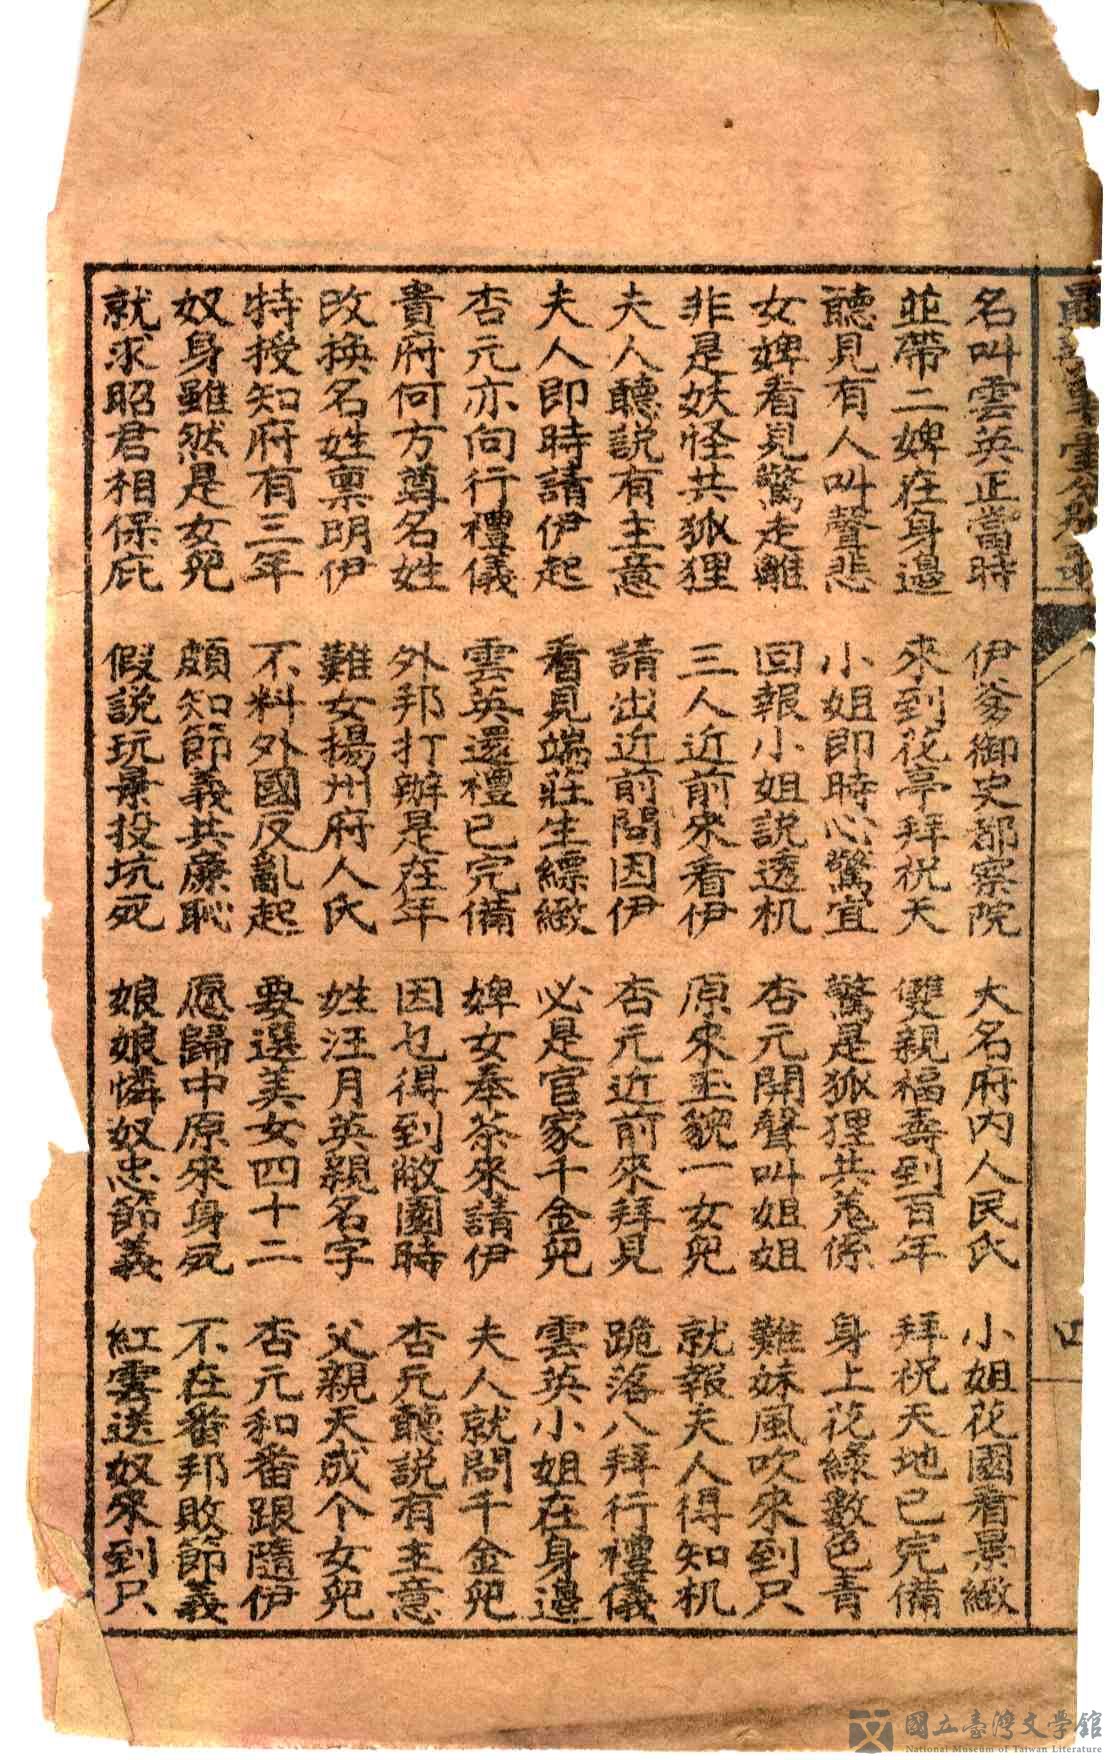 名叫雲英正當時 伊爹御史都察院 大名府内人民氏 小姐花園看景緻
並帶二婢在身邊 來到花亭拜祝天 雙親福壽到百年 拜祝天地已完備
聽見有人叫聲悲 小姐即時心驚宜 驚是狐狸共鬼係 身上花綠數色青
女婢看見驚走離 回報小姐説透机 杏元開聲叫姐姐 難妹風吹來到只
非是妖怪共狐狸 三人近前來看伊 原來玉貌一女兒 就報夫人得知机
夫人聽説有主意 請出近前問因伊 杏元近前來拜見 跪落八拜行禮儀
夫人即時請伊起 看見端莊生縹緻 必是官家千金兒 雲英小姐在身邊
杏元亦向行禮儀 雲英還禮已完備 婢女奉茶來請伊 夫人就問千金兒
貴府何方尊名姓 外邦打辦是在年 因乜得到敝園時 杏元聽説有主意
改換名姓禀明伊 難女揚州府人氏 姓汪月英親名字 父親天成个女兒
特授知府有三年 不料外國反亂起 要選美女四十二 杏元和番跟隨伊
奴身雖然是女兒 頗知節義共廉恥 愿歸中原來身死 不在番邦敗節義
就求昭君相保庇 假説玩景投坑死 娘娘憐奴忠節義 紅雲送奴來到只
四
國立臺灣文學館
National Museum of Taiwan Literature